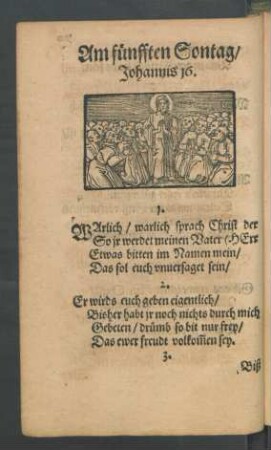 Am fünfften Sontag/
Johannis 16.
1.
WArlich / warlich sprach Christ der
So jr werdet meinen Vater (HErr
Etwas bitten im Namen mein/
Das sol euch vnuersaget sein/
2.
Er wirds euch geben eigentlich/
Bisher habt jr noch nichts durch mich
Gebeten/ drümb so bit nur frey/
Das ewer freudt volkom̃en sey.
3.
Biß